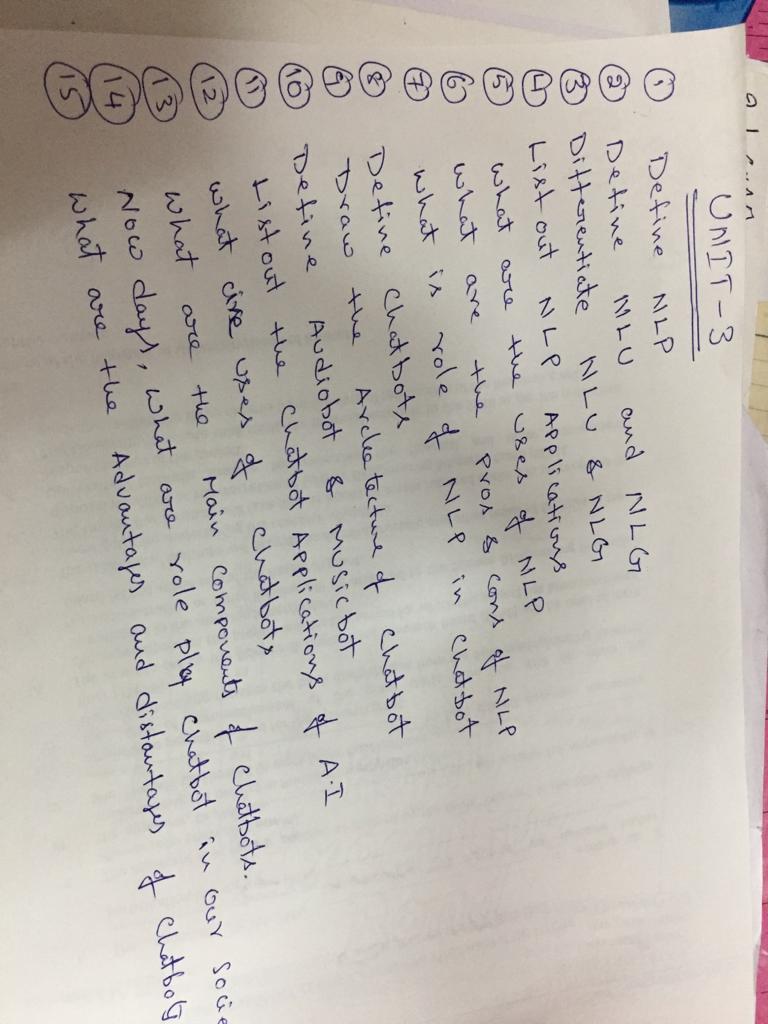 UNIT-3
① Define NLP
② Define NLU and NLG
③ Differentiate NLU & NLG
④ List out NLP Applications
⑤ what are the uses of NLP
⑥ what are the pros & cons of NLP
⑦ what is role of NLP in chatbot
⑧ Define chatbots
⑨ Draw the Archetecture of chatbot
⑩ Define Audiobot & Musicbot
⑪ List out the chatbot Applications of A.I
⑫ what are uses of chatbots
⑬ what are the Main components of chatbots.
⑭ Now days, what are role play chatbot in our socie
⑮ what are the Advantages and distantages of chatbots